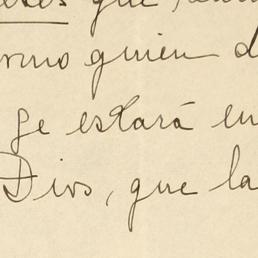 que,
como quien d
ge estará en
Dios, que la